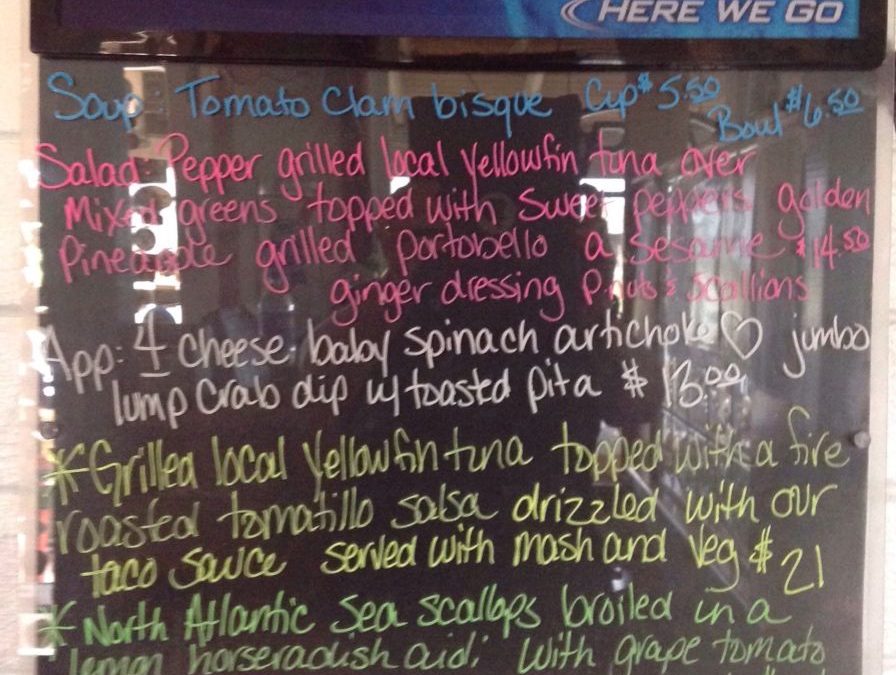 HERE WE GO
Soup: Tomato Clam bisque Cup $5.50
Bowl $6.50
Salad: Pepper grilled local yellowfin tuna over
Mixed greens topped with Sweet peppers golden
Pineapple grilled portobello a Sesame $14.50
ginger dressing P.nuts & Scallions
App: 4 cheese: baby spinach artichoke ♡ jumbo
lump Crab dip w/ toasted pita $13.00
*Grilled local Yellowfin tuna topped with a fire
roasted tomatillo salsa drizzled with our
taco sauce served with mash and veg $21
*North Atlantic Sea scallops broiled in a
lemon horseradish aioli with grape tomato